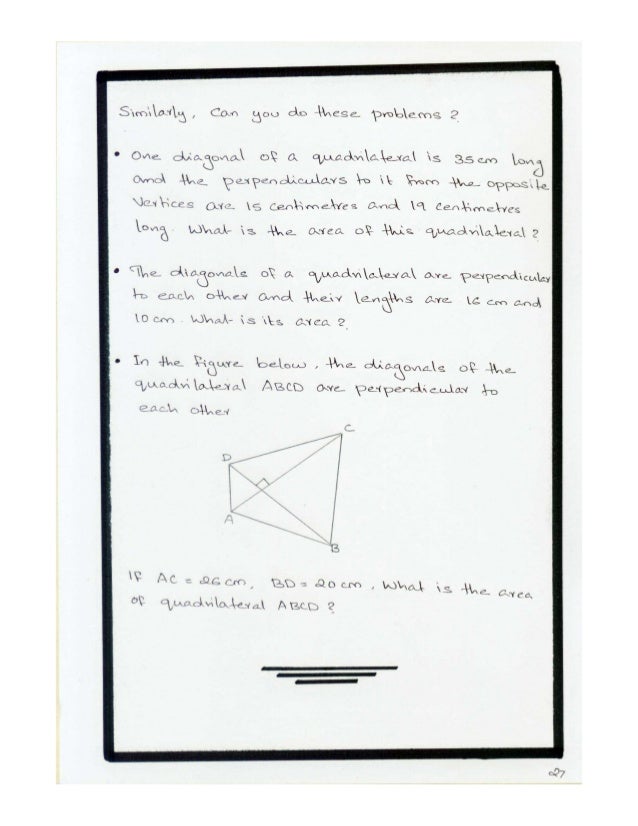 Similarly, Can you do these problems ?
• One diagonal of a quadrilateral is 35cm long
and the perpendiculars to it from the opposite
Vertices are 15 centimetres and 19 centimetres
long. What is the area of this quadrilateral ?
• The diagonals of a quadrilateral are perpendicular
to each other and their lengths are 16 cm and
10 cm. What is its area ?
• In the figure below, the diagonals of the
quadrilateral ABCD are perpendicular to
each other
C
D
A
B
If AC = 26 cm, BD = 20 cm, What is the area
of quadrilateral ABCD ?
27